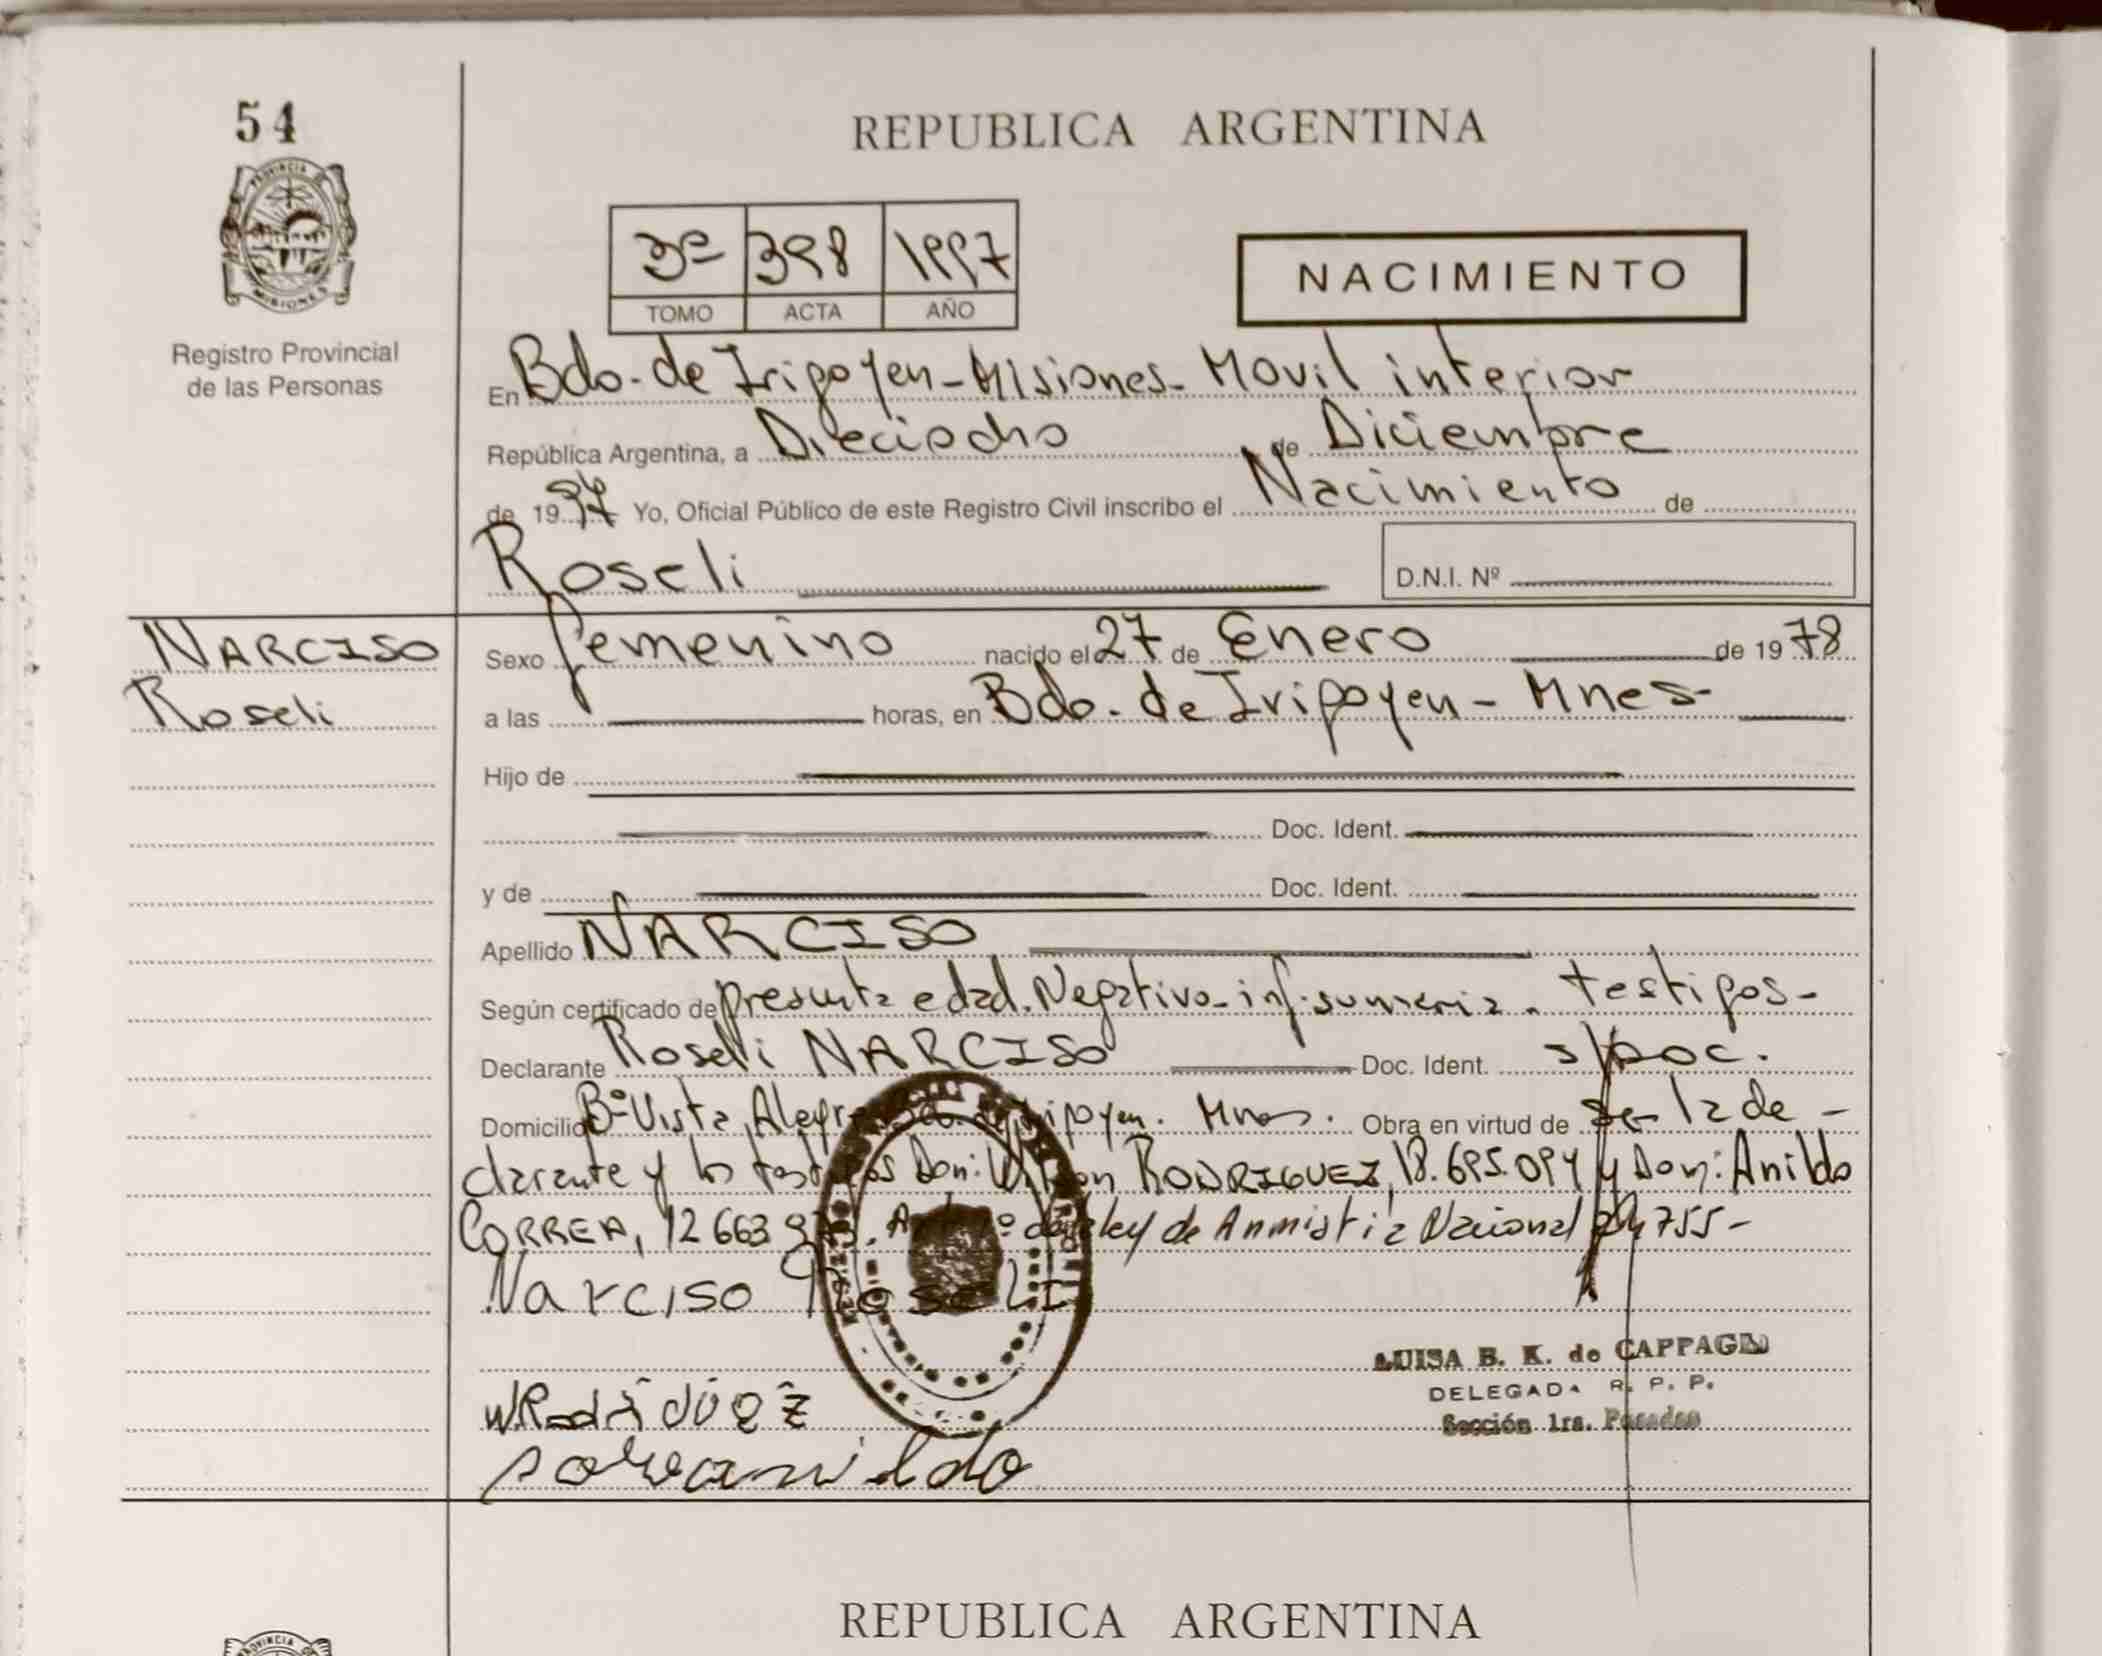 54
REPUBLICA ARGENTINA
PROVINCIA DE
MISIONES
3º 398 1997
TOMO ACTA AÑO
NACIMIENTO
Registro Provincial
de las Personas
En Bdo. de Irigoyen - Misiones - Movil interior
República Argentina, a Dieciocho de Diciembre
de 1997 Yo, Oficial Público de este Registro Civil inscribo el Nacimiento de
Roseli D.N.I. Nº
NARCISO
Roseli
Sexo femenino nacido el 27 de Enero de 1978
a las horas, en Bdo. de Irigoyen - Mnes -
Hijo de
Doc. Ident.
y de Doc. Ident.
Apellido NARCISO
Según certificado de presunta edad. Negativo - inf. sumaria. testigos -
Declarante Roseli NARCISO Doc. Ident. s/Doc.
Domicilio Bº Vista Alegre Bdo. de Irigoyen. Mnes. Obra en virtud de ser la de -
clarante y los testigos Don: RODRIGUEZ, 18.695.094 y Don: Anildo
CORREA, 12 663 de ley de Anmistia Nacional 24755 -
Narciso Roseli
LUISA B. K. de
DELEGADA R. P. P.
Sección 1ra. Posadas
REPUBLICA ARGENTINA
PROVINCIA